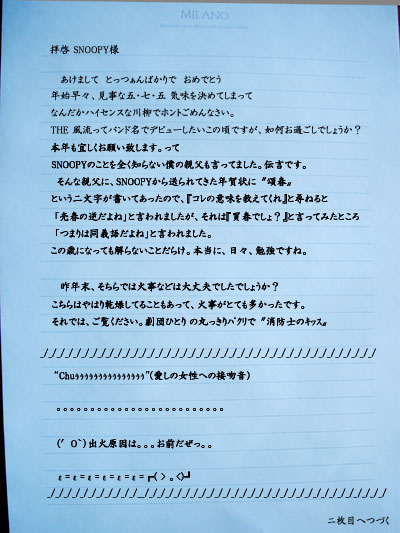 MILANO
拝啓 SNOOPY様
あけまして とっつぁんばかりで おめでとう
年始早々、見事な五・七・五 気味を決めてしまって
なんだかハイセンスな川柳でホントごめんなさい。
THE 風流ってバンド名でデビューしたいこの頃ですが、如何お過ごしでしょうか?
本年も宜しくお願い致します。って
SNOOPYのことを全く知らない僕の親父も言ってました。伝言です。
そんな親父に、SNOOPYから送られてきた年賀状に〝頌春〟
という二文字が書いてあったので、『コレの意味を教えてくれ』と尋ねると
「売春の逆だよね」と言われましたが、それは『買春でしょ?』と言ってみたところ
「つまりは同義語だよね」と言われました。
この歳になっても解らないことだらけ。本当に、日々、勉強ですね。
昨年末、そちらでは火事などは大丈夫でしたでしょうか?
こちらはやはり乾燥してることもあって、火事がとても多かったです。
それでは、ご覧ください。劇団ひとりの丸っきりパクリで〝消防士のキッス〟
“Chuぅぅぅぅぅぅぅぅぅぅぅぅぅぅ”(愛しの女性への接吻音)
。。。。。。。。。。。。。。。。。。。。。。。。
(′ O`)出火原因は。。。お前だぜっ。。
ε=ε=ε=ε=ε=ε=┏( >。<)┛
二枚目へつづく